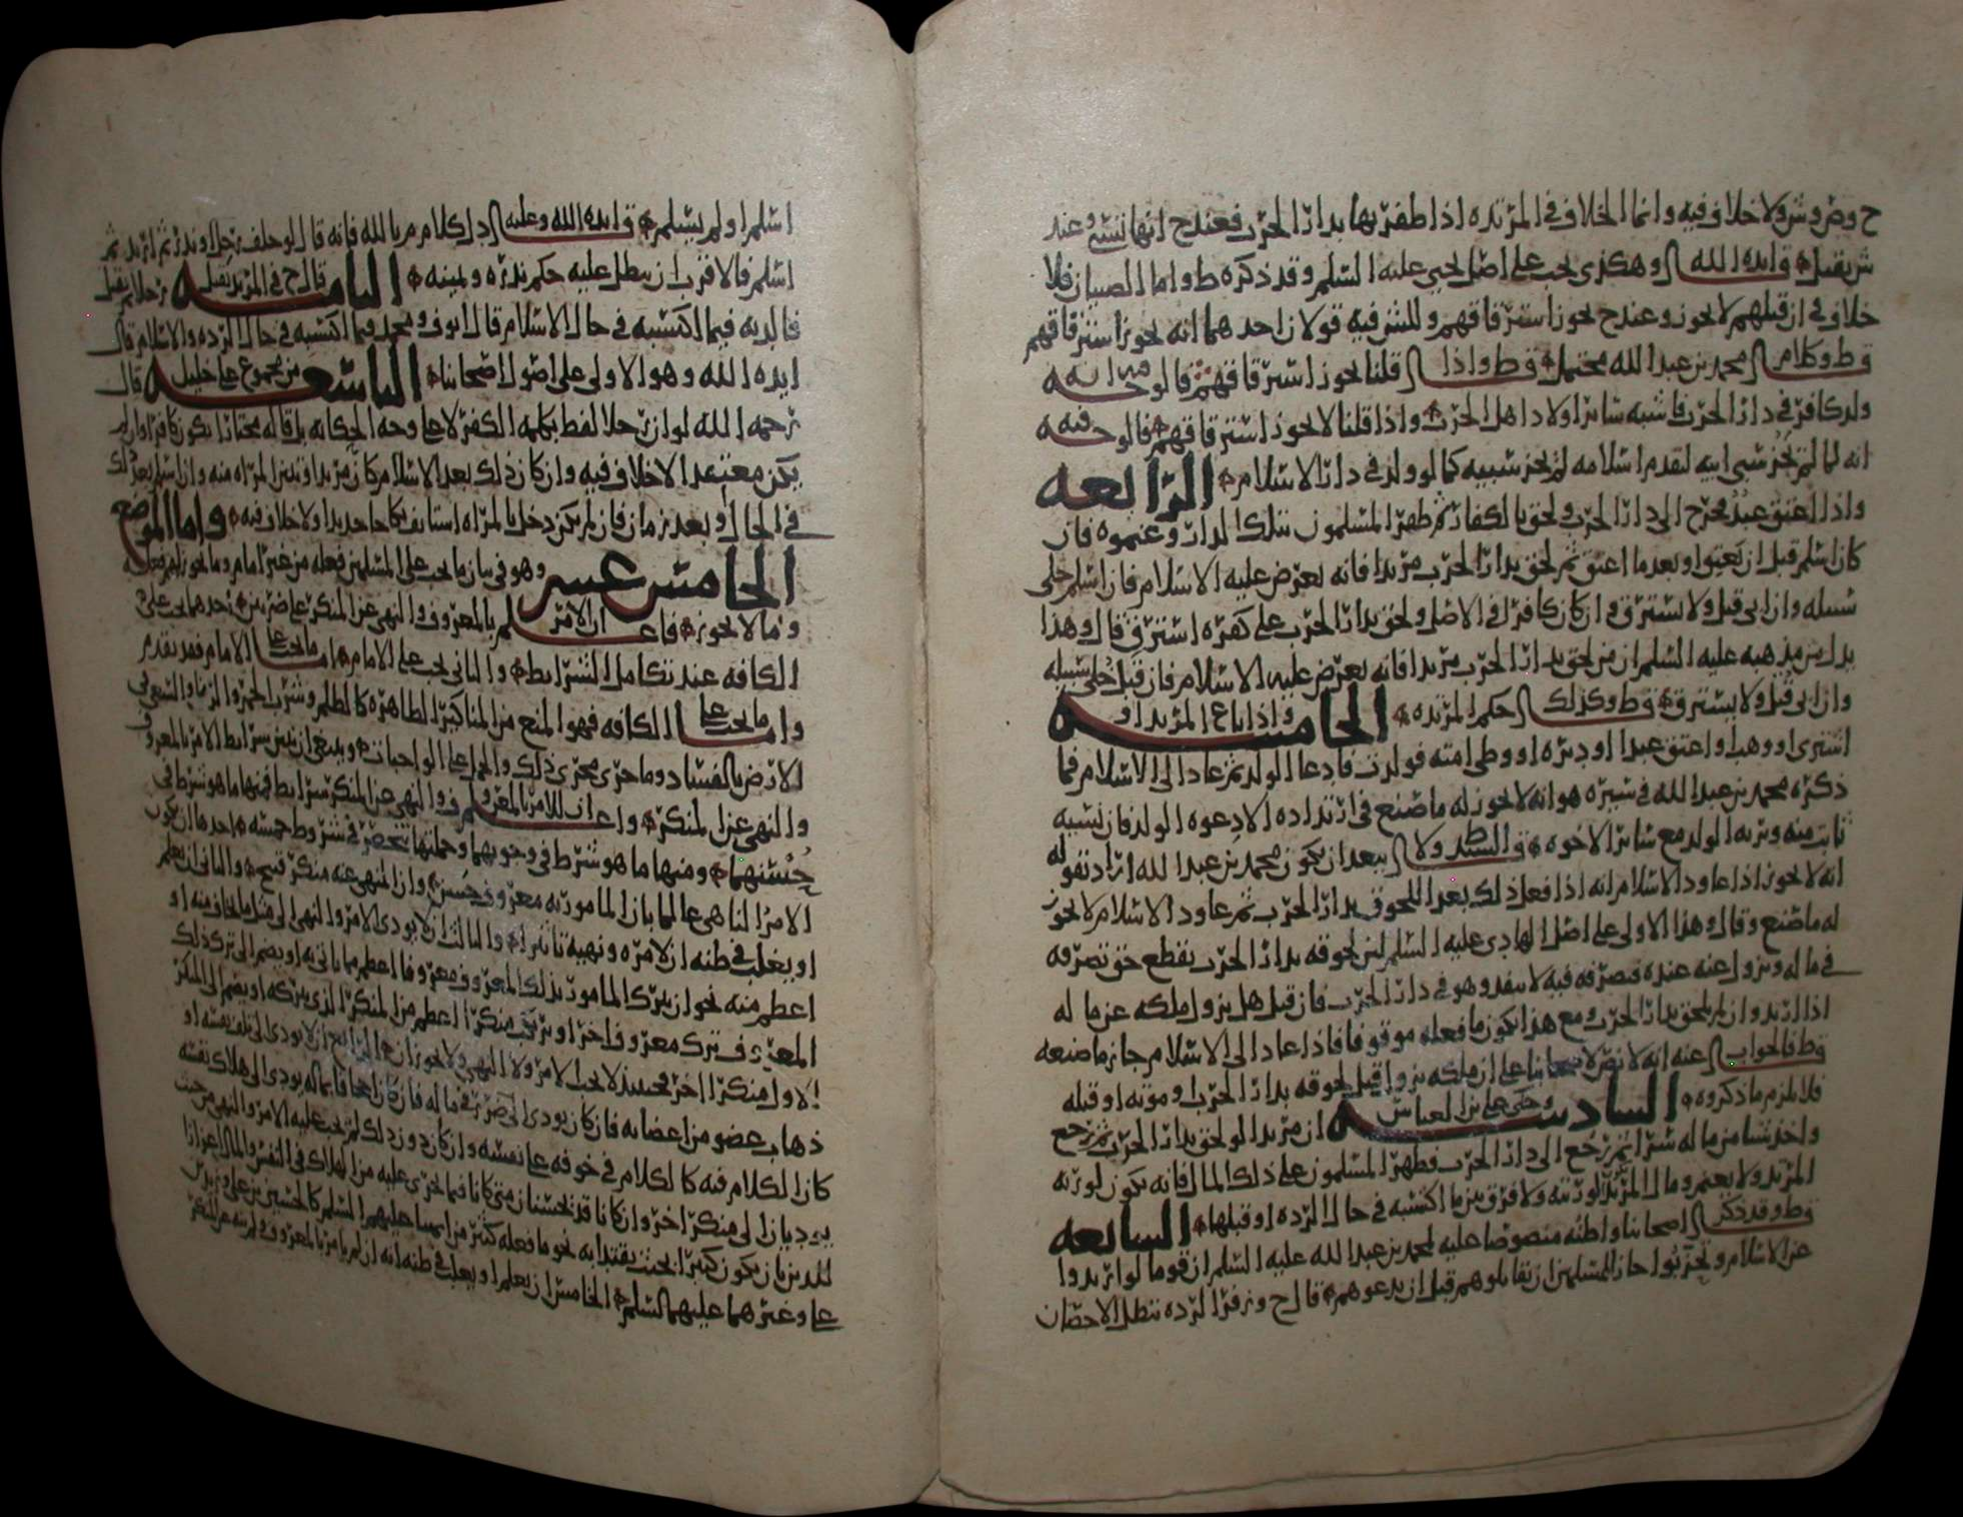 ح وص وش ولا خلاف فيه وانما الخلاف في المرتده اذا ظفر بها بدار الحرب فعند ح انها تسبى وعند
ش يقبل قال ايده الله وهكذى يجب على اصل يحيى عليه السلم وقد ذكره ط واما الصبيان فلا
خلاف في ان قبلهم لا يجوز وعند ح يجوز استرقاقهم وللش فيه قولان احدهما انه يجوز استرقاقهم
قال ط وكلام محمد بن عبد الله محتمل قال ط واذا قلنا يجوز استرقاقهم فالوجه انه
ولد كافر في دار الحرب فاشبه سائر اولاد اهل الحرب واذا قلنا لا يجوز استرقاقهم فالوجه فيه
انه لما لم يجز سبي ابيه لتقدم اسلامه لم يجز سبيه كما لو ولد في دار الاسلام الرابعه
واذا اعتق عبد فخرج الى دار الحرب ولحق بالكفار ثم ظهر المسلمون بتلك الدار وغنموه فان
كان اسلم قبل ان يعتق او بعد ما اعتق ثم لحق بدار الحرب مرتدا فانه يعرض عليه الاسلام فان اسلم خلي
سبيله وان ابى قتل ولا يسترق وان كان كافرا في الاصل ولحق بدار الحرب على كفره استرق قال وهذا
يدل من مذهبه عليه السلم ان من لحق بدار الحرب مرتدا فانه يعرض عليه الاسلام فان قبل خلي سبيله
وان ابى قتل ولا يسترق قال ط وكذلك حكم المرتده الخامسه واذا باع المرتد او
اشترى او وهب او اعتق عبدا او دبره او وطى امته فولدت فادعا الولد ثم عاد الى الاسلام فما
ذكره محمد بن عبد الله في سيره هو انه لا يجوز له ما صنع في ارتداده الا دعوه الولد فان نسبه
ثابت منه ويرثه الولد مع سائر الاخوه قال السيد ط ولا يبعد ان يكون محمد بن عبد الله اراد بقوله
انه لا يجوز اذا عاود الاسلام انه اذا فعل ذلك بعد اللحوق بدار الحرب ثم عاود الاسلام لا يجوز
له ما صنع وقال وهذا الاولى على اصل الهادي عليه السلم لان لحوقه بدار الحرب يقطع حق تصرفه
في ماله ويزول عنه عنده فتصرفه فيه لا ينفذ وهو في دار الحرب فان قيل هل يزول ملكه عن ماله
اذا ارتد وان لم يلحق بدار الحرب ومع هذا يكون ما فعله موقوفا فاذا عاد الى الاسلام جاز ما صنعه
قال ط فالجواب عنه انه لا نص لاصحابنا على ان ملكه يزول قبل لحوقه بدار الحرب او موته او قتله
فلا يلزم ما ذكروه السادسه وحكى علي بن العباس ان مرتدا لو لحق بدار الحرب ثم رجع
واخذ شيا من ماله سرا ثم رجع الى دار الحرب فظهر المسلمون على ذلك المال فانه يكون لورثه
المرتد ولا يغنم ومال المرتد لورثته ولا فرق بين ما اكتسبه في حال الرده او قبلها السابعه
قال ط وقد ذكر اصحابنا واظنه منصوصا عليه لمحمد بن عبد الله عليه السلم ان قوما لو ارتدوا
عن الاسلام وتحزبوا جاز للمسلمين ان يقاتلوهم قبل ان يدعوهم قال ح وزفر الرده تبطل الاحصان
اسلم او لم يسلم قال ايده الله وعليه دل كلام م بالله فانه قال لو حلف رجل او نذر ثم ارتد ثم
اسلم فالاقرب ان يبطل عليه حكم نذره ويمينه الثامنه قال ح في المرتد يقتل رجلا ثم يقتل
فالديه فيما اكتسبه في حال الاسلام قال ابو ف ومحمد فيما اكتسبه في حال الرده والاسلام قال
ايده الله وهو الاولى على اصول اصحابنا التاسعه من مجموع علي خليل قال
رحمه الله لو ان رجلا لفظ بكلمه الكفر لا على وجه الحكايه بل قاله مختارا يكون كافرا وان لم
يكن معتقدا لا خلاف فيه وان كان ذلك بعد الاسلام كان مرتدا وتبين المراه منه وان اسلم بعد ذلك
في الحال او بعد زمان فان لم يكن دخل بالمراه استانف نكاحا جديدا ولا خلاف فيه واما الموضع
الخامس عشر وهو في بيان ما يجب على المسلمين فعله من غير امام وما يجوز لهم فعله
وما لا يجوز فاعلم ان الامر بالمعروف والنهي عن المنكر على ضربين احدهما يجب على
الكافه عند تكامل الشرائط والثاني يجب على الامام اما ما يجب على الامام فقد تقدم
واما ما يجب على الكافه فهو المنع من المناكير الظاهره كالظلم وشرب الخمر والزنا والسعي في
الارض بالفساد وما جرى مجرى ذلك والحمل على الواجبات وينبغي ان نبين شرائط الامر بالمعروف
والنهي عن المنكر واعلم ان للامر بالمعروف والنهي عن المنكر شرائط فمنها ما هو شرط في
حسنهما ومنها ما هو شرط في وجوبهما وجملتها تنحصر في شروط خمسه احدها ان يكون
الامر الناهي عالما بان المامور به معروف حسن وان المنهي عنه منكر قبيح والثاني ان يعلم
او يغلب في ظنه ان لامره ونهيه تاثيرا والثالث ان لا يودي الامر والنهي الى مثل ما يخاف منه او
اعظم منه نحو ان يترك المامور بذلك المعروف معروفا اعظم مما ياتي به او يضم الى ترك ذلك
المعروف ترك معروف اخر او يرتكب منكرا اعظم من المنكر الذي يتركه او يضم الى المنكر
الاول منكرا اخر فحينئذ لا يجب الامر ولا النهي ولا يجوزان الرابع ان لا يودي الى تلف نفسه او
ذهاب عضو من اعضائه فان كان يودي الى ضرر في ماله فان كان اجحافا بماله يودي الى هلاك نفسه
كان الكلام فيه كالكلام في خوفه على نفسه وان كان دون ذلك لم يجب عليه الامر والنهي من حيث
يوديان الى منكر اخر وان كانا قد يحسنان متى كانا فيما يجري عليه من الهلاك في النفس والمال اعزازا
للدين بان يكون كبيرا بحيث يقتدا به نحو ما فعله كثير من ائمتنا عليهم السلم كالحسين بن علي وزيد بن
علي وغيرهما عليهما السلم الخامس ان يعلم او يغلب في ظنه انه ان لم يامر بالمعروف ولم ينه عن المنكر